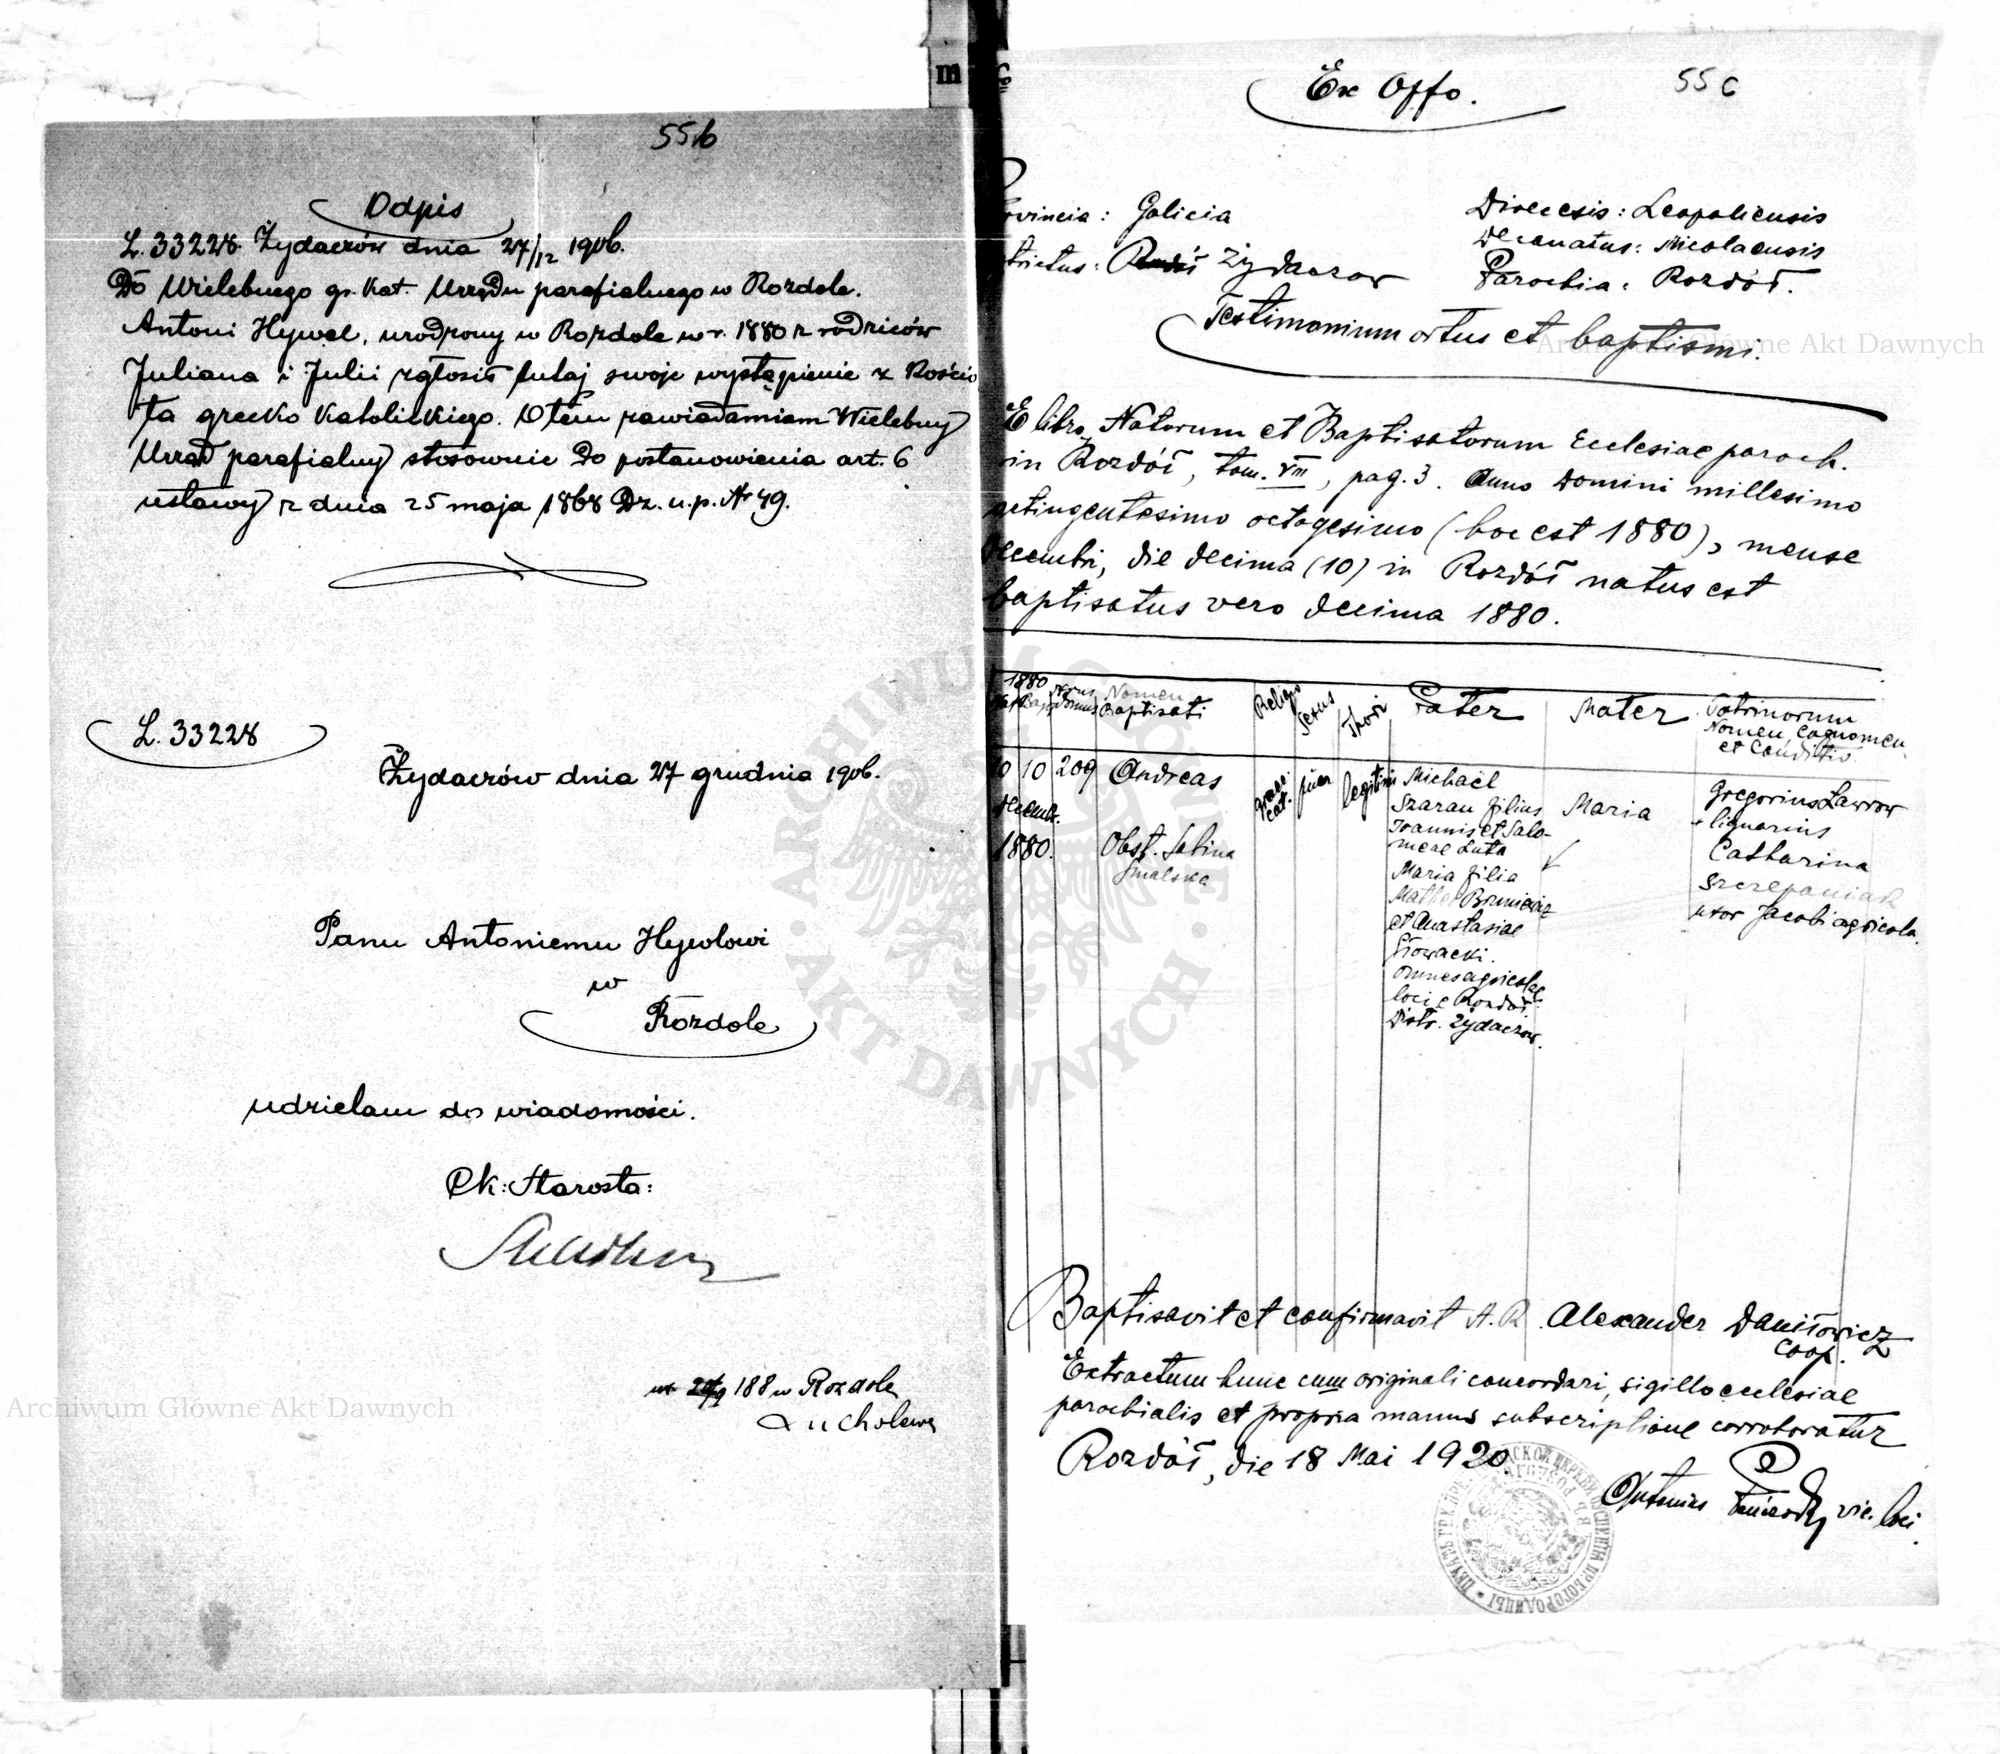 55b
Odpis
L. 33228. Żydaczów dnia 27/12 1906.
Do Wielebnego gr. kat. Urzędu parafialnego w Rozdole.
Antoni Hywel, urodzony w Rozdole w r. 1880 z rodziców
Juliana i Julii zgłosił tutaj swoje wystąpienie z Kościo
ła grecko katolickiego. O tem zawiadamiam Wielebny
Urząd parafialny stosownie do postanowienia art. 6
ustawy z dnia 25 maja 1868 Dz. u. p. Nr 49.
L. 33228
Żydaczów dnia 27 grudnia 1906.
Panu Antoniemu Hywlowi
w
Rozdole
udzielam do wiadomości.
Ck: Starosta:
188 w Rozdole
55 c
Ex Offo.
ovincia: Galicia
Dioecesis: Leopoliensis
trictus: Żydaczow
Decanatus: Nicolaensis
Parochia: Rozdół.
Testimonium ortus et baptismi.
E libro Natorum et Baptisatorum Ecclesiae paroch.
in Rozdół, tom. VIII, pag. 3. Anno Domini millesimo
octingentesimo octogesimo (hoc est 1880), mense
Decembri, die decima (10) in Rozdół natus est
baptisatus vero decima 1880.
1880
Nat Bap
Nrus Domus
Nomen Baptisati
Religio
Sexus
Thori
Pater
Mater
Patrinorum
Nomen, Cognomen
et Conditio
10 10 209 Andreas
Decemb.
1880.
Obst. Sabina
Smalska
graec. cat.
puer
legitimi
Michaël
Szaran filius
Joannis et Salo-
meae Luta
Maria filia
et Anastasiae
Słowacki.
omnes agricolae
loci e Rozdół.
Distr. Żydaczow.
Maria
Gregorius Lawrow
lignarius
Catharina
Szczepaniak
uxor Jacobi agricola.
Baptisavit et confirmavit A. R. Alexander Daniłowicz
Coop.
Extractum hunc cum originali concordari, sigillo ecclesiae
parochialis et propria manus subscriptione corroboratur
Rozdół, die 18 Mai 1920
Antonius vic. loci.
Archiwum Główne Akt Dawnych
Archiwum Główne Akt Dawnych
ARCHIWUM GŁÓWNE • AKT DAWNYCH •